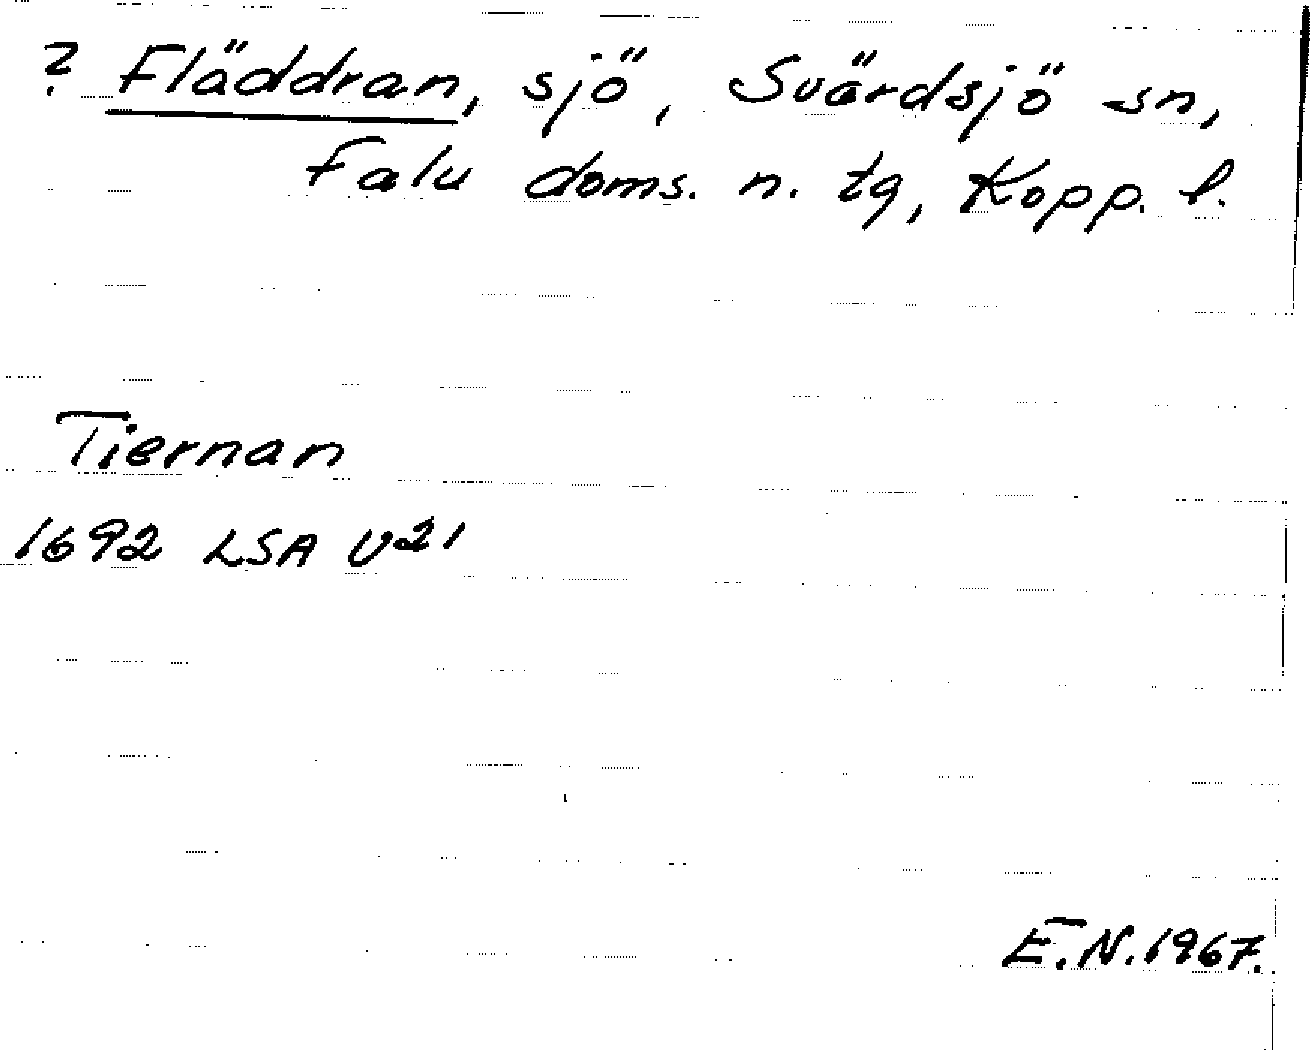 ? Fläddran, sjö, Svärdsjö sn,
Falu doms. n. tg, Kopp. l.
Tiernan
1692 LSA U21
E.N. 1967.